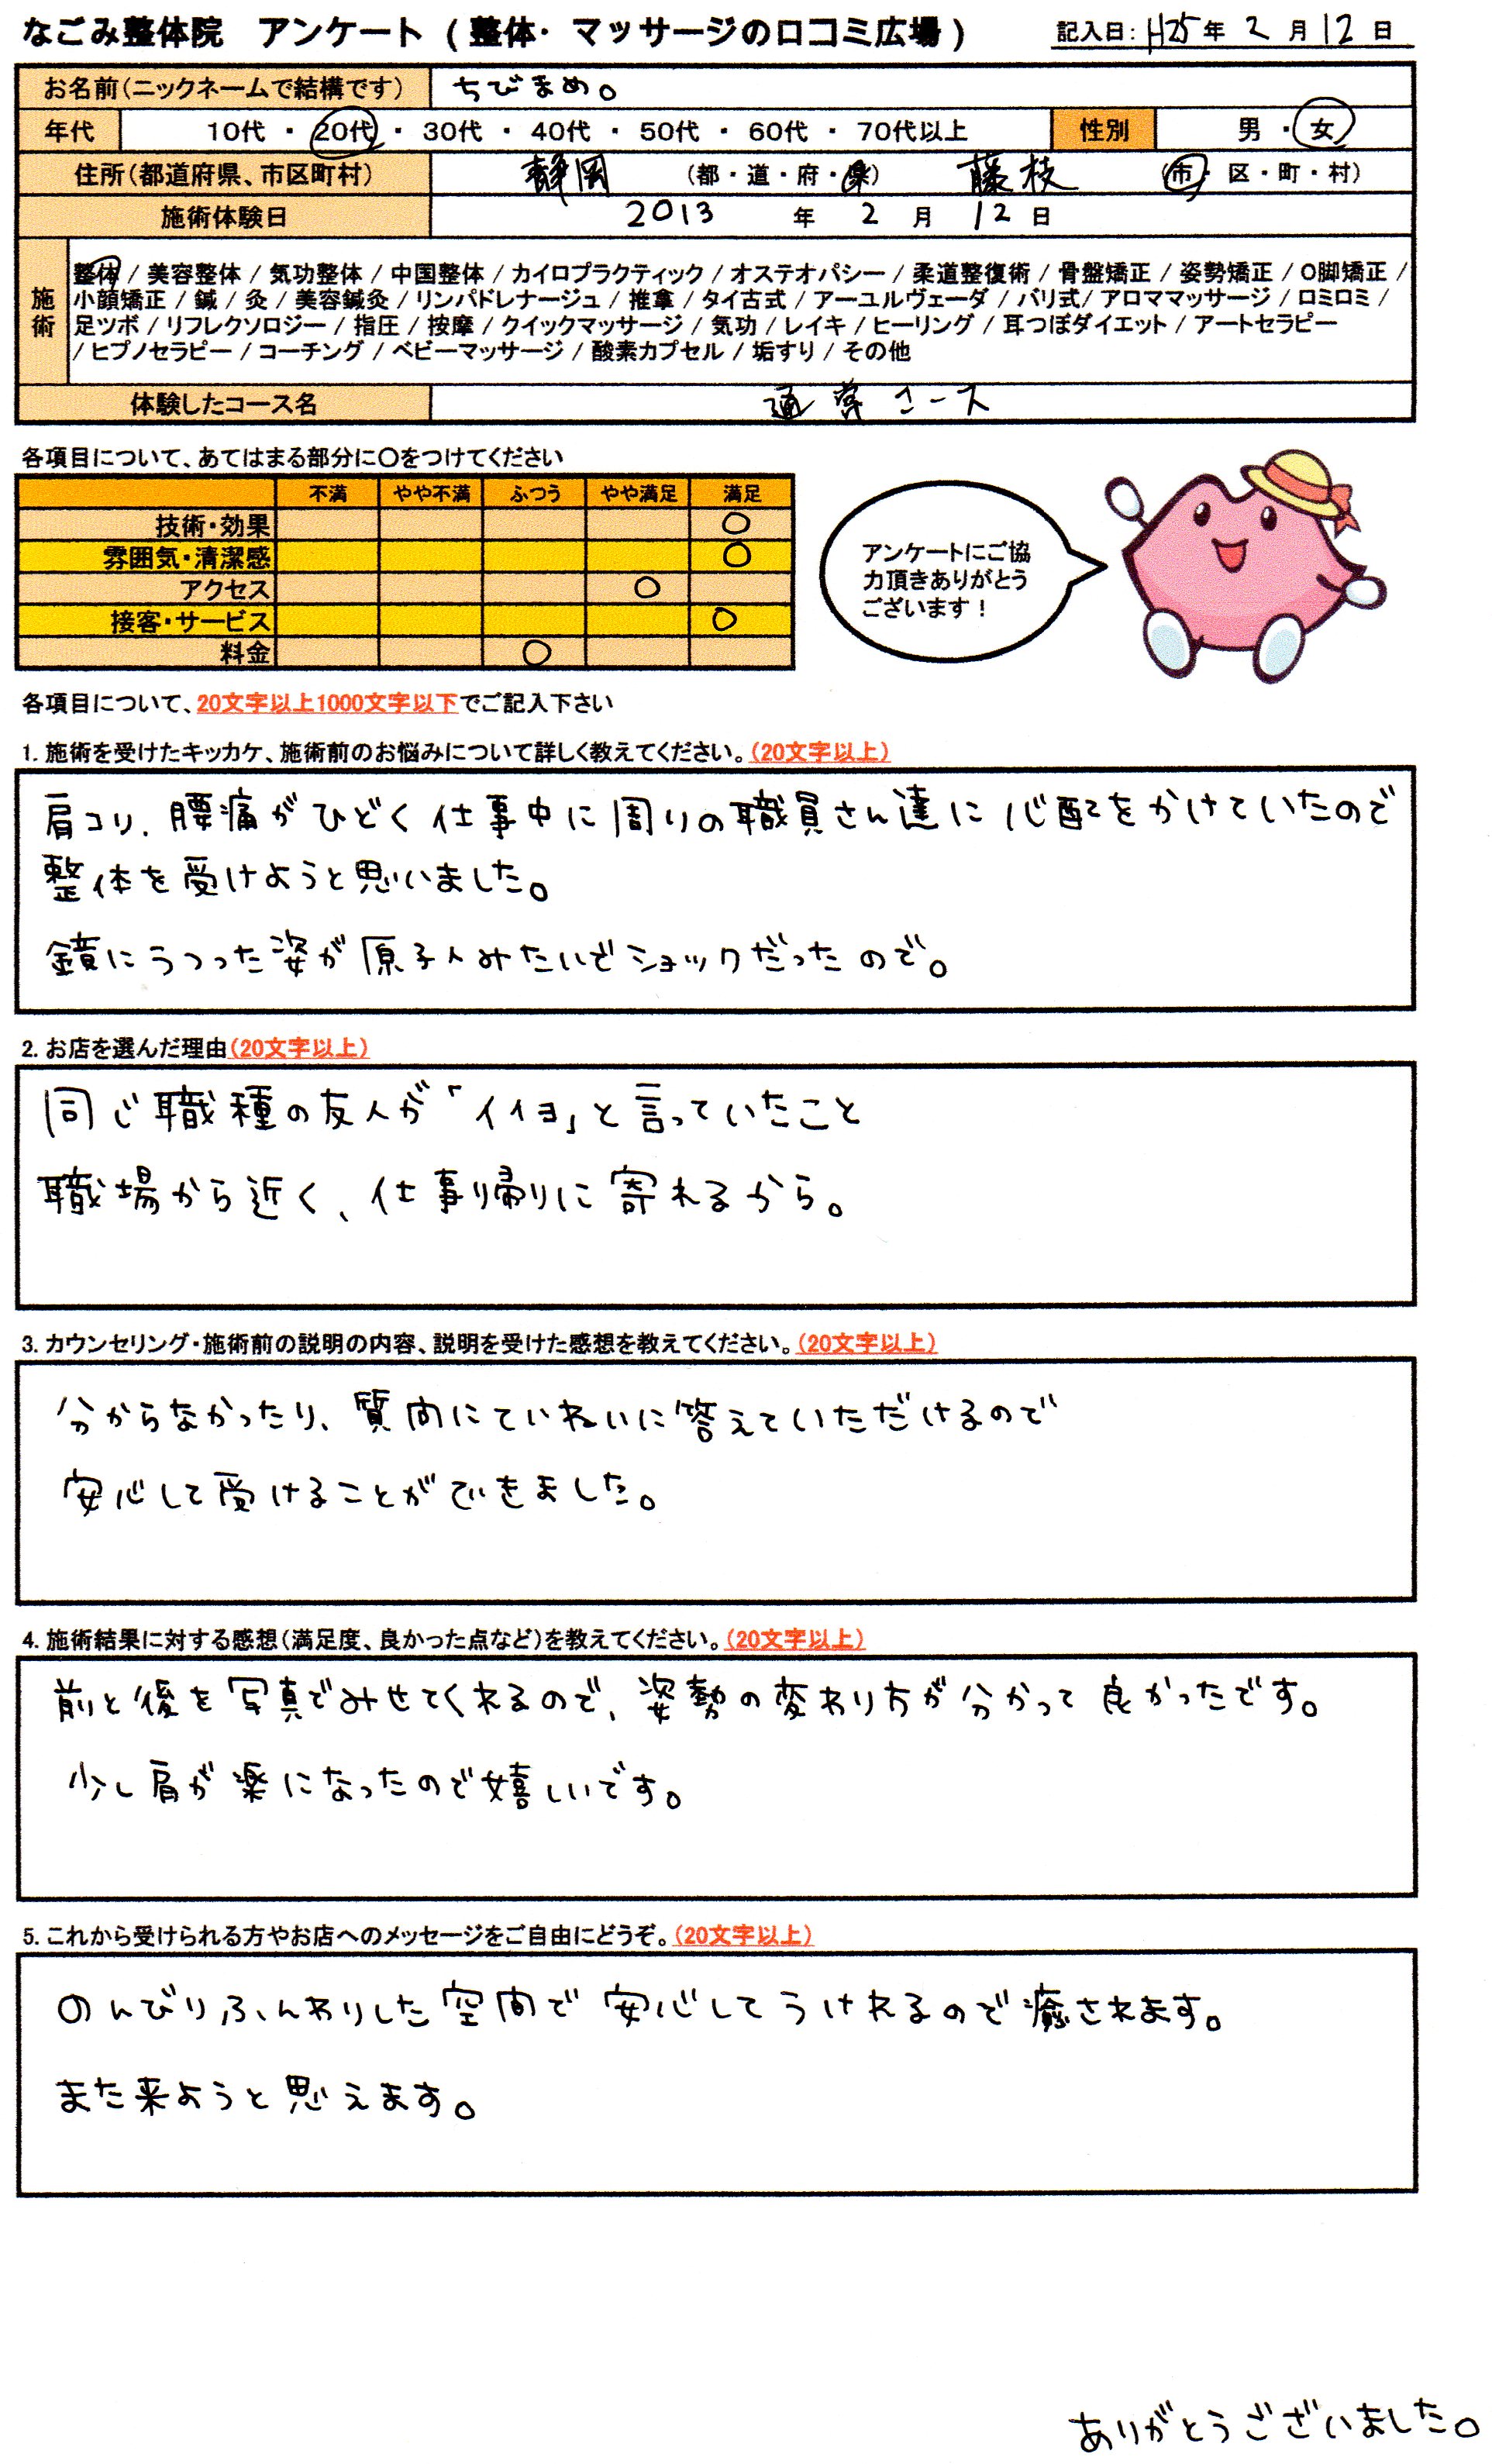 なごみ整体院　アンケート（整体・マッサージの口コミ広場）　記入日：H25年 2月12日
お名前（ニックネームで結構です）　ちびまめ。
年代　10代・20代・30代・40代・50代・60代・70代以上　性別　男・女
住所（都道府県、市区町村）　静岡（都・道・府・県）　藤枝（市・区・町・村）
施術体験日　2013年 2月 12日
施術
整体 / 美容整体 / 気功整体 / 中国整体 / カイロプラクティック / オステオパシー / 柔道整復術 / 骨盤矯正 / 姿勢矯正 / O脚矯正 /
小顔矯正 / 鍼 / 灸 / 美容鍼灸 / リンパドレナージュ / 推拿 / タイ古式 / アーユルヴェーダ / バリ式 / アロママッサージ / ロミロミ /
足ツボ / リフレクソロジー / 指圧 / 按摩 / クイックマッサージ / 気功 / レイキ / ヒーリング / 耳つぼダイエット / アートセラピー
/ ヒプノセラピー / コーチング / ベビーマッサージ / 酸素カプセル / 垢すり / その他
体験したコース名　通常コース
各項目について、あてはまる部分に〇をつけてください
不満　やや不満　ふつう　やや満足　満足
技術・効果　〇
雰囲気・清潔感　〇
アクセス　〇
接客・サービス　〇
料金　〇
アンケートにご協
力頂きありがとう
ございます！
各項目について、20文字以上1000文字以下でご記入下さい
1. 施術を受けたキッカケ、施術前のお悩みについて詳しく教えてください。（20文字以上）
肩コリ、腰痛がひどく仕事中に周りの職員さん達に心配をかけていたので
整体を受けようと思いました。
鏡にうつった姿が原子人みたいでショックだったので。
2. お店を選んだ理由（20文字以上）
同じ職種の友人が「イイヨ」と言っていたこと
職場から近く、仕事り帰りに寄れるから。
3. カウンセリング・施術前の説明の内容、説明を受けた感想を教えてください。（20文字以上）
分からなかったり、質問にていねいに答えていただけるので
安心して受けることができました。
4. 施術結果に対する感想（満足度、良かった点など）を教えてください。（20文字以上）
前と後を写真でみせてくれるので、姿勢の変わり方が分かって良かったです。
少し肩が楽になったので嬉しいです。
5. これから受けられる方やお店へのメッセージをご自由にどうぞ。（20文字以上）
のんびりふんわりした空間で安心してうけれるので癒されます。
また来ようと思えます。
ありがとうございました。